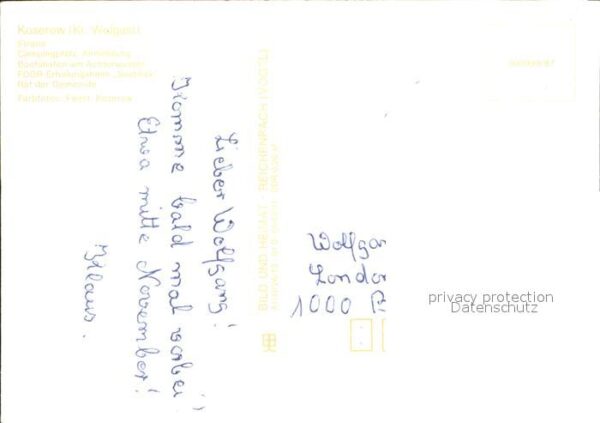 Koserow (Kr. Wolgast)
Strand
Campingplatz, Anmeldung
Bootshafen am Achterwasser
FDGB-Erholungsheim „Seeblick“
Rat der Gemeinde
Farbfotos:
Lieber Wolfgang!
Komme bald mal vorbei!
Etwa mitte November!
Klaus.
BILD UND HEIMAT · REICHENBACH (VOGTL)
Wolfgan
London
1000
privacy protection
Datenschutz